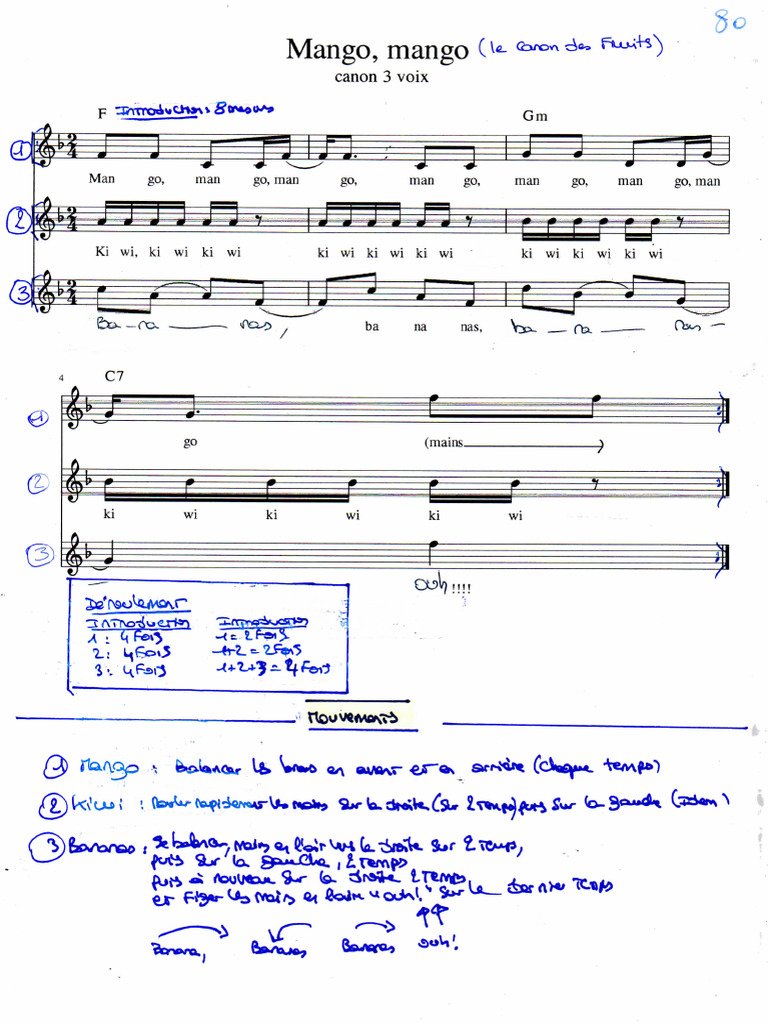 80
Mango, mango (le canon des Fruits)
canon 3 voix
F Introduction : 8 mesures Gm
1
Man go, man go, man go, man go, man go, man go, man
2
Ki wi, ki wi ki wi ki wi ki wi ki wi ki wi ki wi ki wi
3
Ba - na nas, ba na nas, ba - na nas -
4 C7
1
go (mains )
2
ki wi ki wi ki wi
3
ouh !!!!
Déroulement
Introduction Introduction
1 : 4 Fois 1 = 2 Fois
2 : 4 Fois 1+2 = 2 Fois
3 : 4 Fois 1+2+3 = 4 Fois
Mouvements
1 Mango : Balancer les bras en avant et en arrière (Chaque temps)
2 Kiwi : Rouler rapidement les mains sur la droite (sur 2 temps) puis sur la gauche (Idem)
3 Bananas : Se balancer, mains en l'air vers la droite sur 2 temps,
puis sur la gauche, 2 temps
puis à nouveau sur la droite 2 temps
et Figer les mains en "ouh!" sur le dernier temps
Banana, Bananas Bananas ouh!